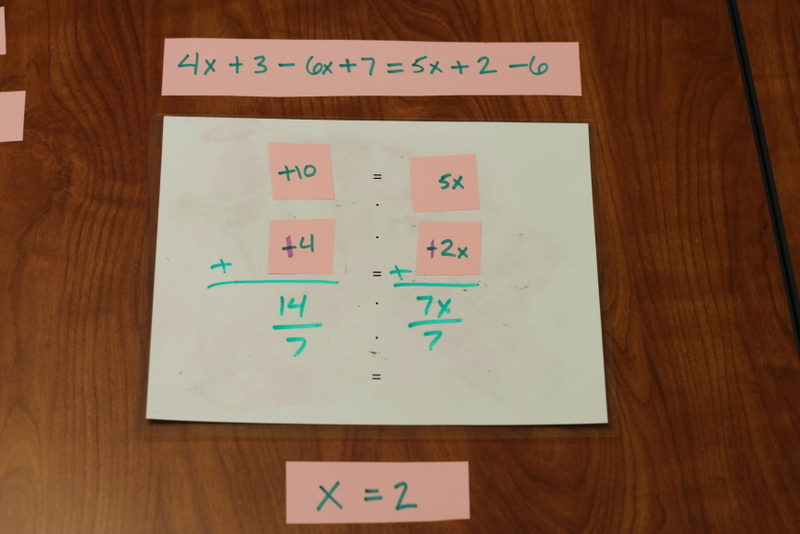 4x + 3 - 6x + 7 = 5x + 2 - 6
+10 = 5x
+ +4 = + +2x
14/7 7x/7
=
x = 2